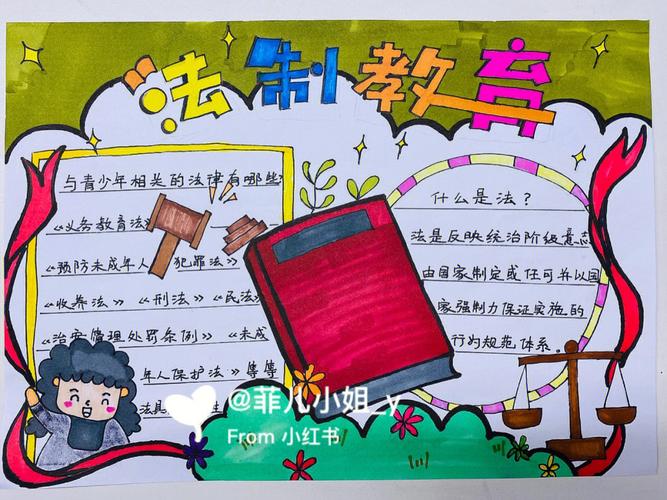 法制教育
与青少年相关的法律有哪些
《义务教育法》
《预防未成年人 犯罪法》
《收养法》 《刑法》 《民法》
《治安管理处罚条例》 《未成
年人保护法》 等等
法具
性
什么是法?
法是反映统治阶级意志
由国家制定或任可并以国
家强制力保证实施的
行为规范体系。
@菲儿小姐_y
From 小红书